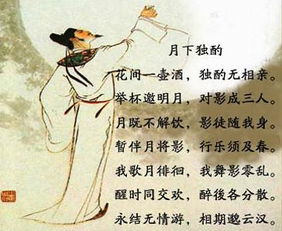 月下独酌
花间一壶酒，独酌无相亲。
举杯邀明月，对影成三人。
月既不解饮，影徒随我身。
暂伴月将影，行乐须及春。
我歌月徘徊，我舞影零乱。
醒时同交欢，醉後各分散。
永结无情游，相期邈云汉。